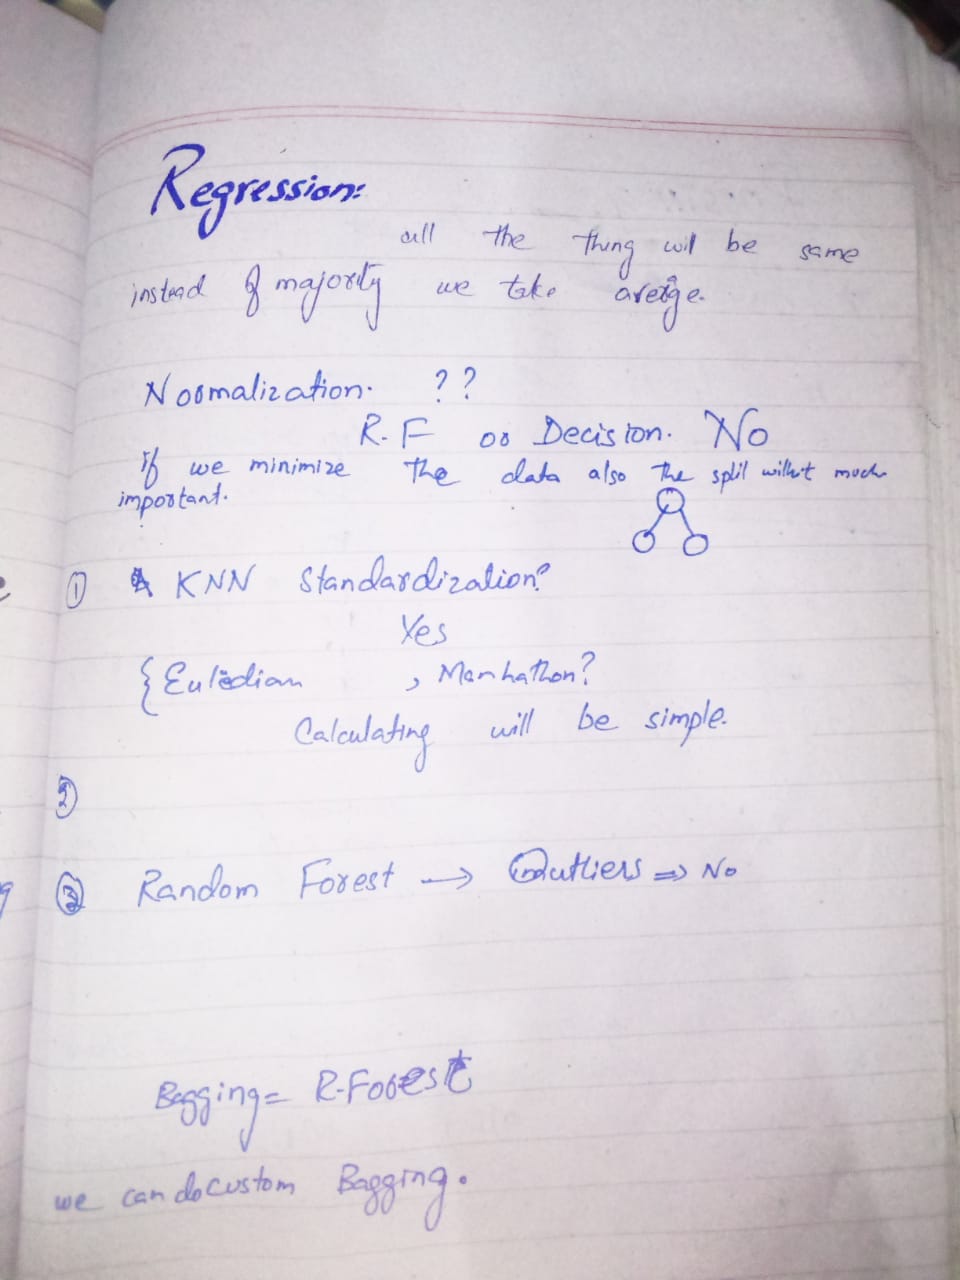 Regression:
all the thing will be same
instead of majority we take averge.
Normalization. ??
R.F or Decision. No
If we minimize the data also the split will't much
important.
① KNN Standardization?
Yes
{ Euledian , Manhathon?
Calculating will be simple.
②
③ Random Forest → Outliers ⇒ No
Bagging = R-Forest
we can do custom Bagging.